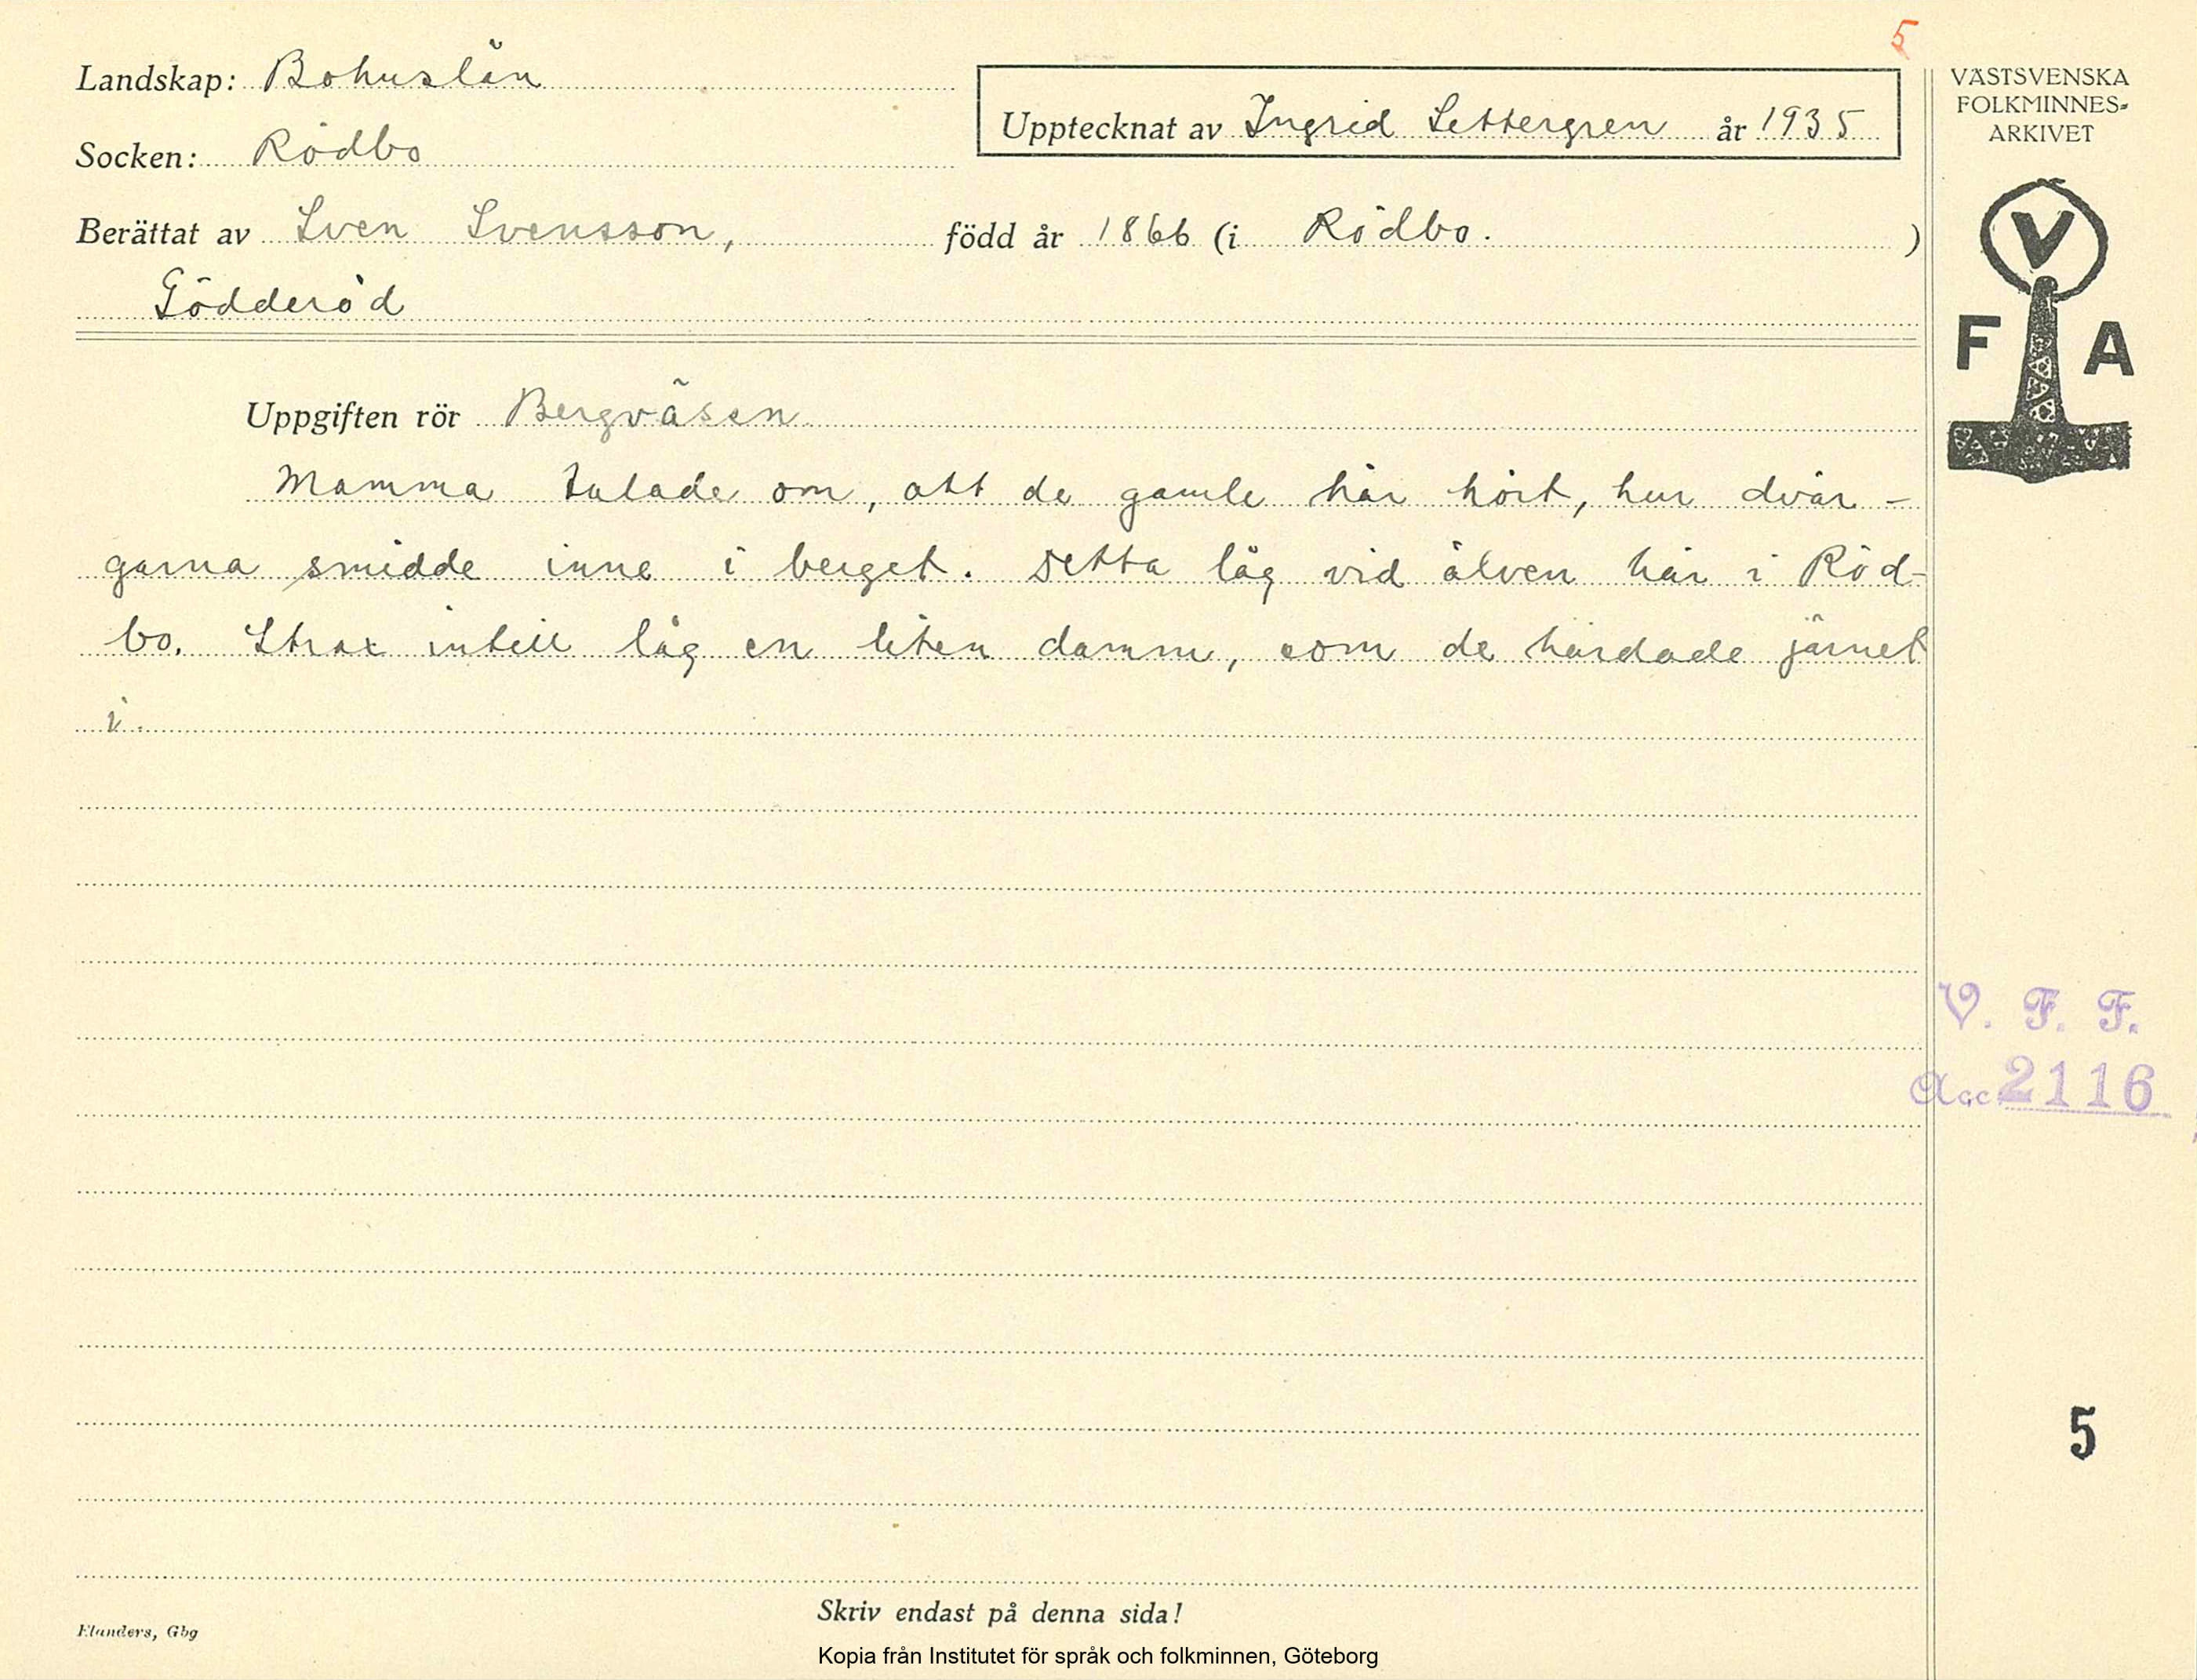 5
Landskap: Bohuslän
Upptecknat av Ingrid Settergren år 1935
VÄSTSVENSKA
FOLKMINNES=
ARKIVET
Socken: Rödbo
Berättat av Sven Svensson, född år 1866 (i Rödbo. )
Gödderöd
V
F A
Uppgiften rör Bergväsen
Mamma talade om, att de gamle här hört, hur dvär-
garna smidde inne i berget. Detta låg vid älven här i Röd-
bo. Strax intill låg en liten damm, som de härdade järnet
i.
V. F. F.
Acc 2116
5
Skriv endast på denna sida!
Elanders, Gbg
Kopia från Institutet för språk och folkminnen, Göteborg